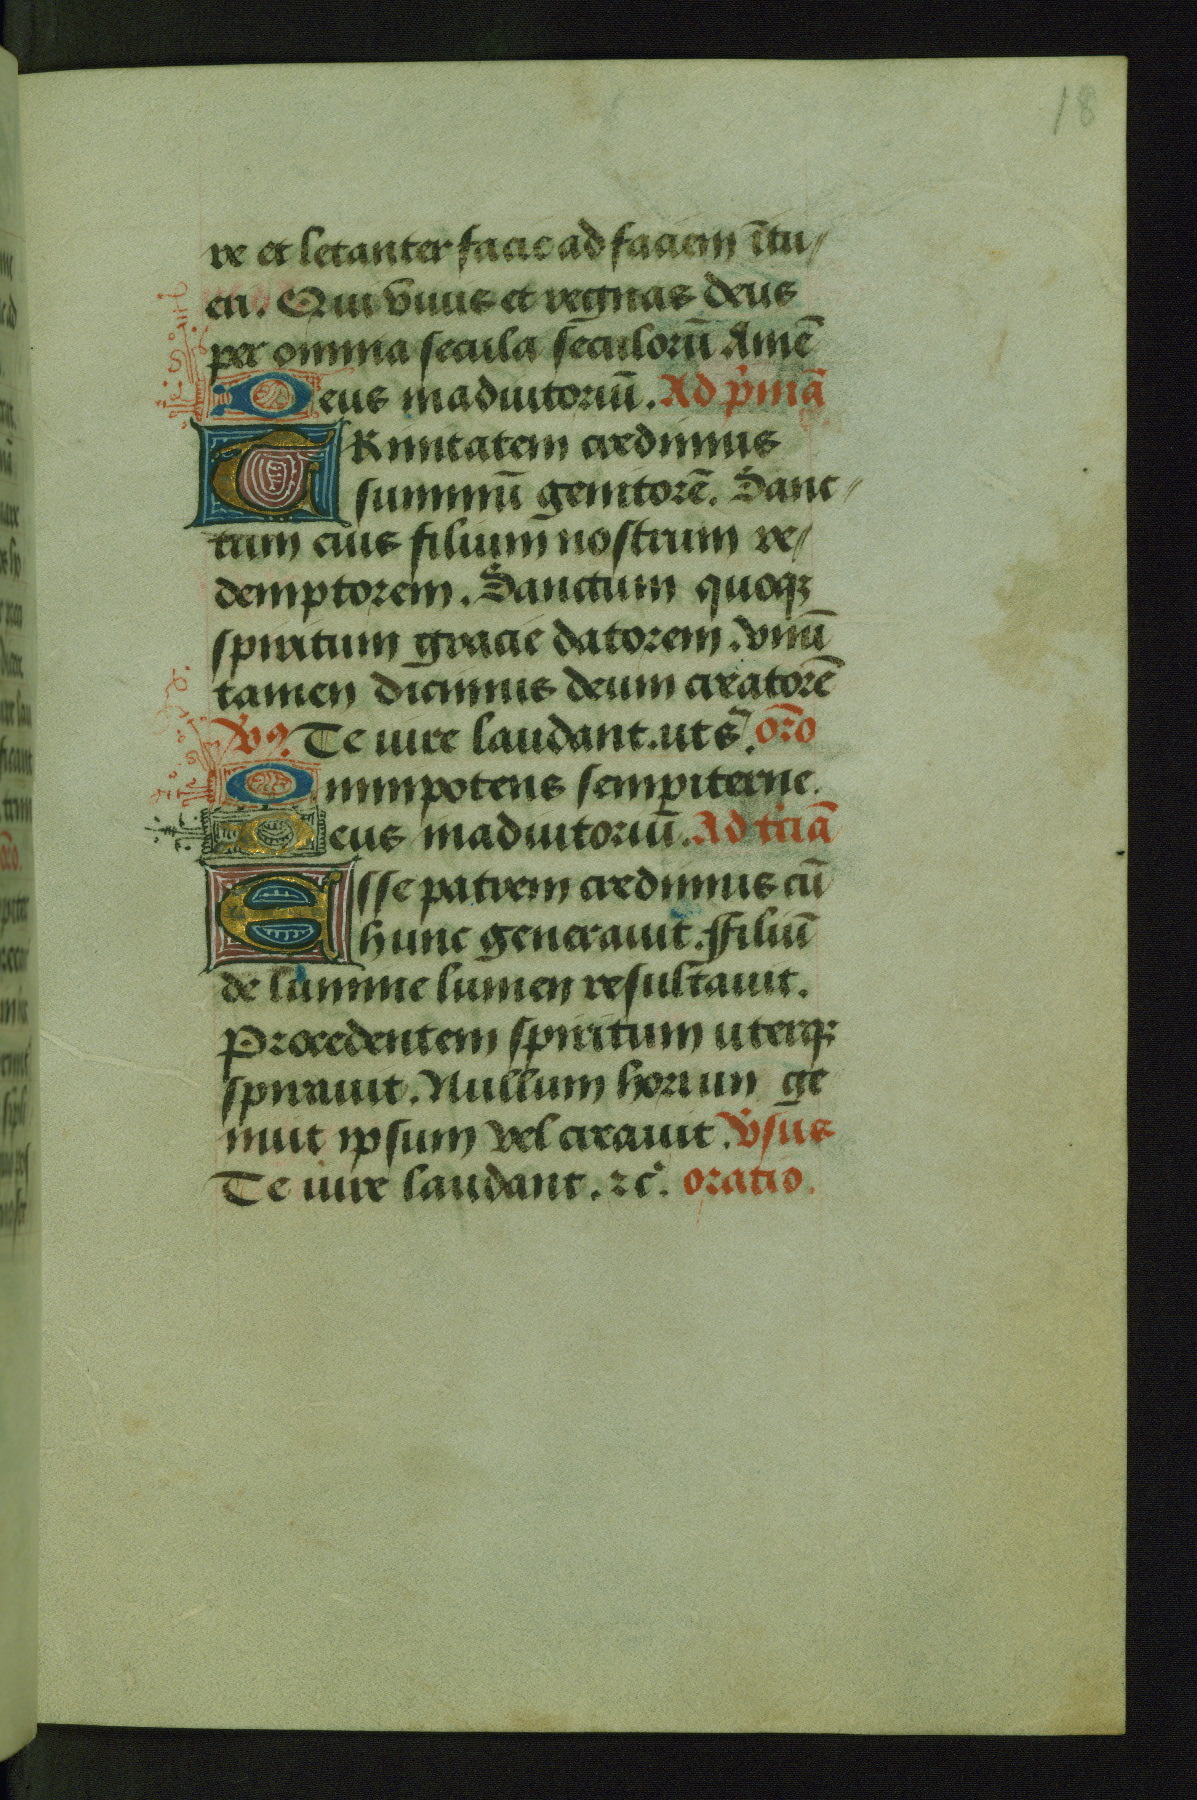 18
re et letanter facie ad faciem ītu
eri. Qui viuis et regnas deus
per omnia secula seculorū Amē
Deus inadiutoriū. Ad p̓mā
TRinitatem credimus
summū genitorē. Sanc
tum eius filium nostrum re
demptorem. Sanctum quoqꝫ
spiritum gracie datorem. vnū
tamen dicimus deum creatorē
Vꝰ. Te iure laudant. ut sͣ. oro̅
Omnipotens sempiterne.
Deus inadiutoriū. Ad t̓ciā
Esse patrem credimus cū
hunc generauit. Filiū
de lumine lumen resultauit.
Procedentem spiritum uterqꝫ
spirauit. Nullum horum ge
nuit ipsum vel creauit. v̓sus
Te iure laudant. ꝛc̓. oratio.